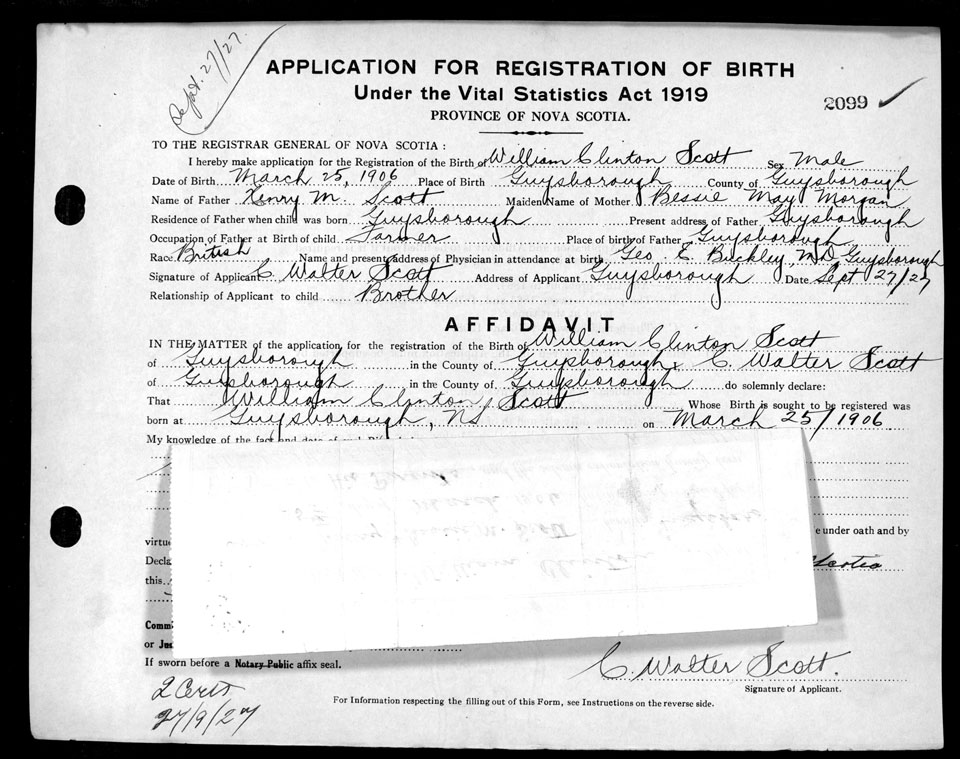 Sept. 27/27
APPLICATION FOR REGISTRATION OF BIRTH
Under the Vital Statistics Act 1919
PROVINCE OF NOVA SCOTIA.
2099
TO THE REGISTRAR GENERAL OF NOVA SCOTIA :
I hereby make application for the Registration of the Birth of William Clinton Scott Sex Male
Date of Birth March 25, 1906 Place of Birth Guysborough County of Guysborough
Name of Father Henry M. Scott Maiden Name of Mother Bessie May Morgan
Residence of Father when child was born Guysborough Present address of Father Guysborough
Occupation of Father at Birth of child Farmer Place of birth of Father Guysborough
Race British Name and present address of Physician in attendance at birth Geo. E Buckley, M.D Guysborough
Signature of Applicant C Walter Scott Address of Applicant Guysborough Date Sept 27/27
Relationship of Applicant to child Brother
AFFIDAVIT
IN THE MATTER of the application for the registration of the Birth of William Clinton Scott
of Guysborough in the County of Guysborough, C Walter Scott
of Guysborough in the County of Guysborough do solemnly declare:
That William Clinton Scott Whose Birth is sought to be registered was
born at Guysborough, NS on March 25/1906
My knowledge of the fact and date of
e under oath and by
virtu
Decla Scotia
this
Comm
or Jus
If sworn before a Notary Public affix seal.
C. Walter Scott.
Signature of Applicant.
2 Certs
27/9/27
For Information respecting the filling out of this Form, see Instructions on the reverse side.